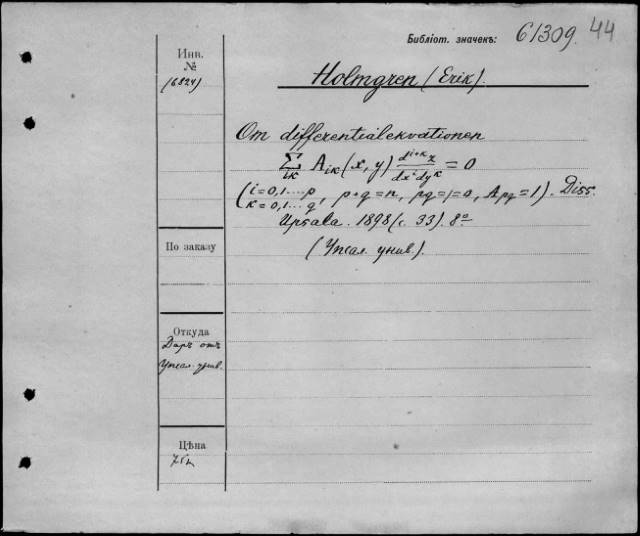 Библіот. значекъ: 61309. 44
Инв.
№
(6824)
Holmgren (Erik).
Om differentialekvationen
∑ik Aik (x, y) d^{i+k}z / dx^i dy^k = 0
(i=0,1....p
k=0,1...q, p+q=n, pq=|=0, Apq=1). Diss.
Upsala. 1898 (с. 33). 8º
(Упсал. унив.).
По заказу
Откуда
Даръ отъ
Упсал. унив.
Цѣна